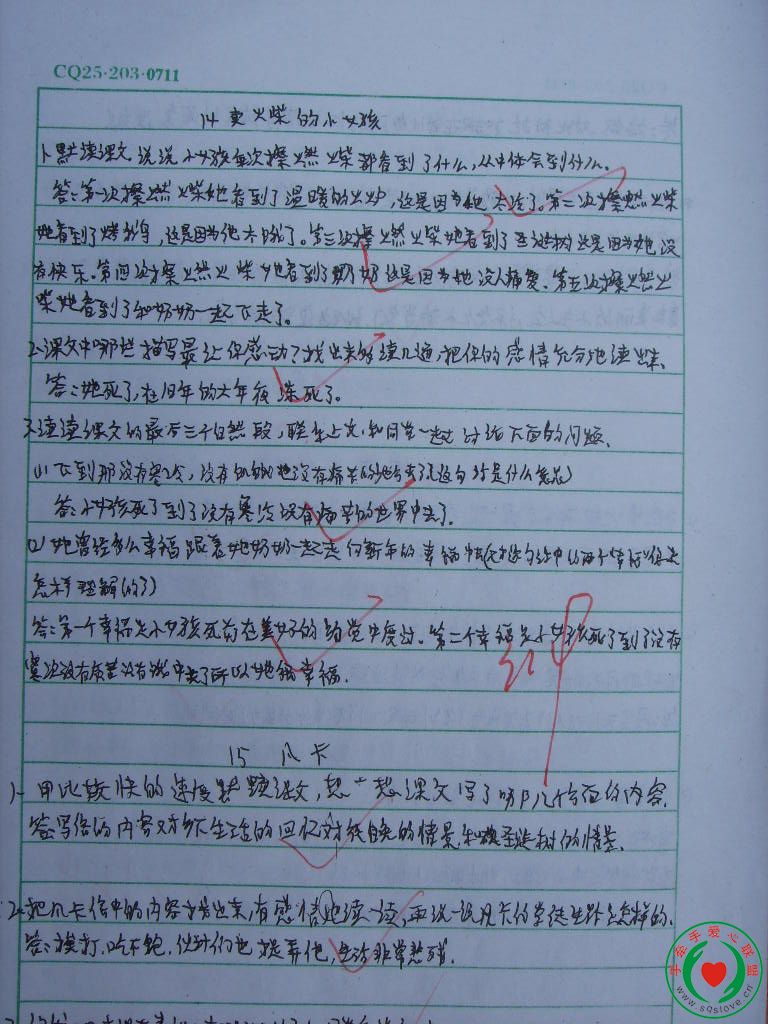 CQ25·203·0711
14 卖火柴的小女孩
1、默读课文,说说小女孩每次擦燃火柴都看到了什么,从中体会到什么。
答:第一次擦燃火柴她看到了温暖的火炉,这是因为她太冷了。第二次擦燃火柴
她看到了烤鹅,这是因为她太饿了。第三次擦燃火柴她看到了圣诞树这是因为她没
有快乐。第四次擦燃火柴她看到了奶奶这是因为她没人痛爱。第五次擦燃火
柴她看到了和奶奶一起飞走了。
2、课文中哪些描写最让你感动?找出来多读几遍,把你的感情充分地读出来。
答:她死了,在旧年的大年夜冻死了。
3、读读课文的最后三个自然段,联系上文,和同学一起讨论下面的问题。
(1)飞到那没有寒冷,没有饥饿,也没有痛苦的地方去了(这句话是什么意思)
答:小女孩死了到了没有寒冷没有痛苦的世界中去了。
(2)她曾经多么幸福跟着她奶奶一起走向新年的幸福中去
怎样理解的?)
答:第一个幸福是小女孩死前在美好的幻觉中度过。第二个幸福是小女孩死了到了没有
寒冷没有 没有 中去了所以她很幸福.
15 凡卡
1、用比较快的速度默读课文,想一想课文写了哪几个方面的内容。
答:写信的内容对乡下生活的回忆 的情景和 圣诞树的情景。
2、把凡卡信中的内容找出来,有感情地读一读,再说一说凡卡的学徒生活是怎样的。
答:挨打,吃不饱,伙计们也捉弄他,生活非常悲残.
手牵手爱心联盟
www.sqslove.cn